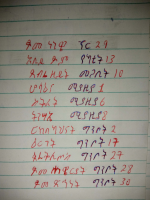 ጾመ ነነዌ ጥር 29
አብይ ጾም የካቲት 13
ደብረ ዘይት መጋቢት 10
ሆሣዕና ሚያዝያ 1
ስቅለት ሚያዝያ 6
ትንሣኤ ሚያዝያ 8
ርክበ ካህናት ግንቦት 2
ዕርገት ግንቦት 17
ጰራቅሊጦስ ግንቦት 27
ጾመ ሐዋርያት ግንቦት 28
ጾመ ድኅነት ግንቦት 30